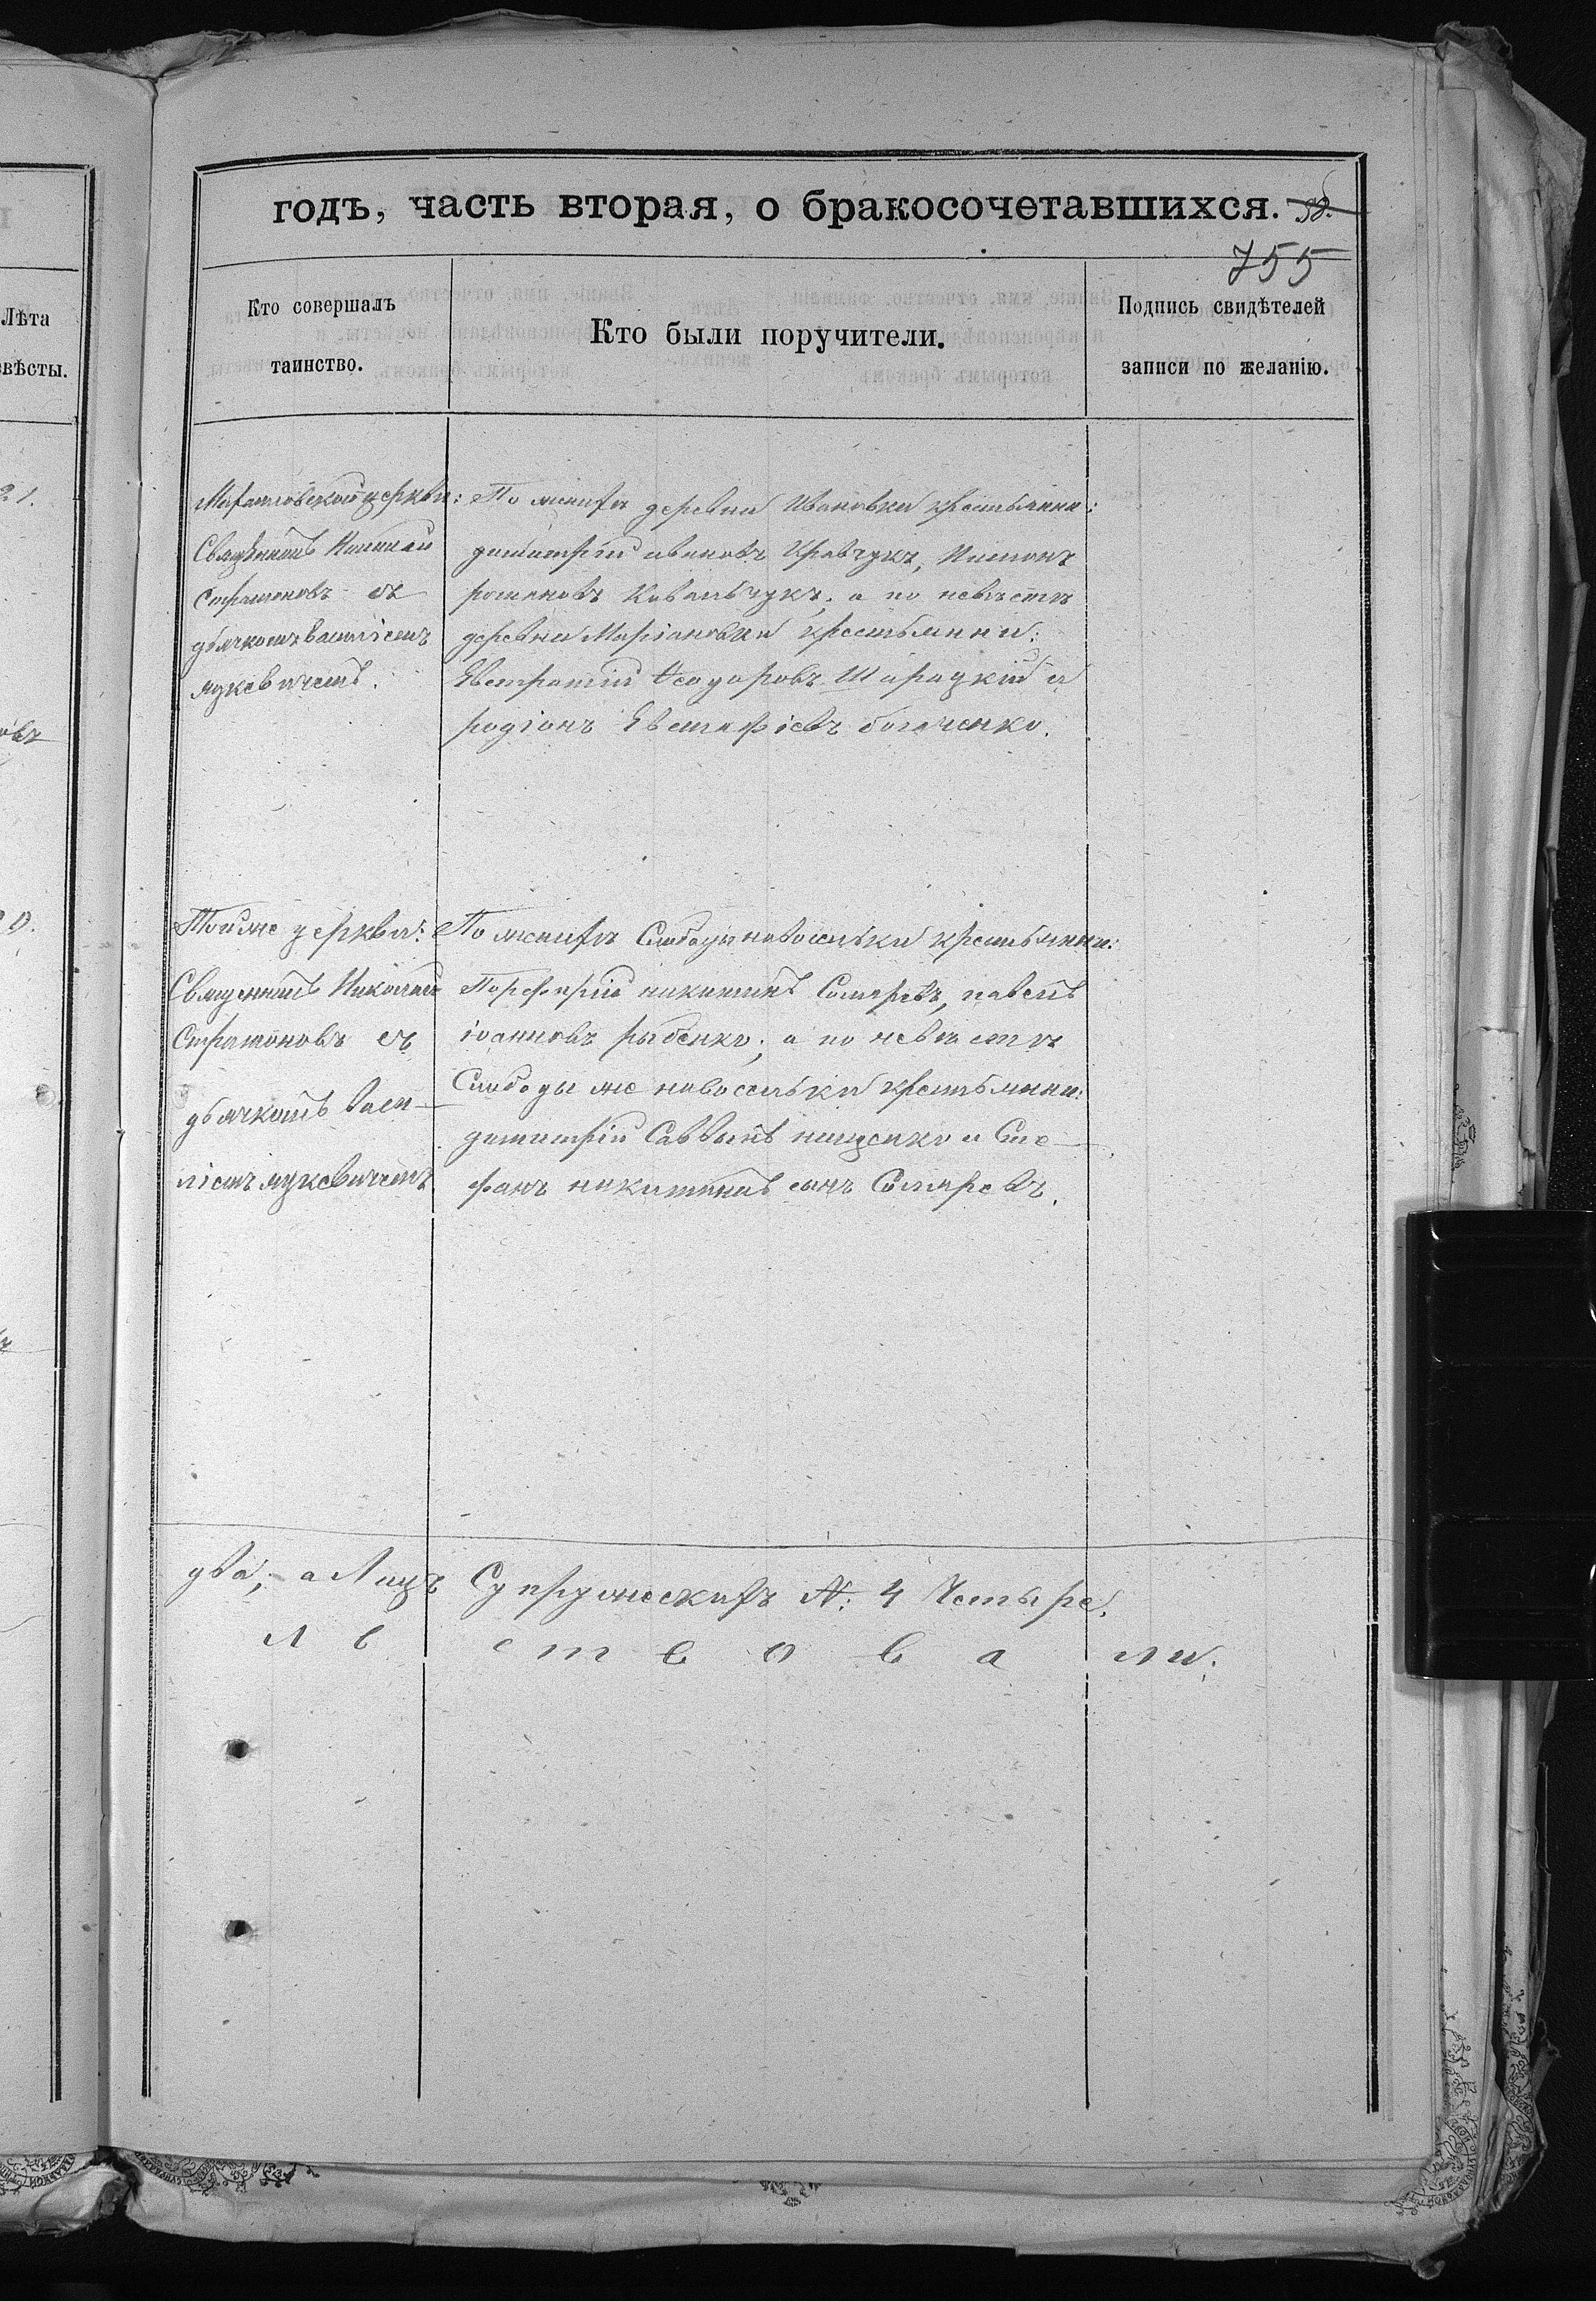 годъ, часть вторая, о бракосочетавшихся. 38.
755
Лѣта
вѣсты.
Кто совершалъ
таинство.
Кто были поручители.
Подпись свидѣтелей
записи по желанію.
21.
церкви:
Священникъ Николай
Стратоновъ съ
дьячкомъ Василіемъ
Луксвичемъ.
По женихѣ деревни Ивановки крестьяни:
Димитрій Ивановъ Кравчукъ,
Романовъ Ковальчукъ; а по невѣстѣ
деревни Маріановки крестьяни:
Евстратій Ѳеодоровъ Шарадкій и
Родіонъ Евстафіевъ богаченко.
Тойже церкви:
Священникъ Николай
Стратоновъ съ
дьячкомъ Васи-
ліемъ Луксвичемъ.
По женихѣ Слободы новоселки крестьяни:
Порфирій никитинъ Столяревъ, павелъ
іоанновъ рыбенко; а по невѣстѣ
Слободы же новоселки крестьяни:
димитрій Саввинъ нищенко и Сте-
фанъ никитинъ сынъ Столяревъ.
два, а Лицъ Супружескихъ №: 4 Четыре.
л с с т в о в а ли.